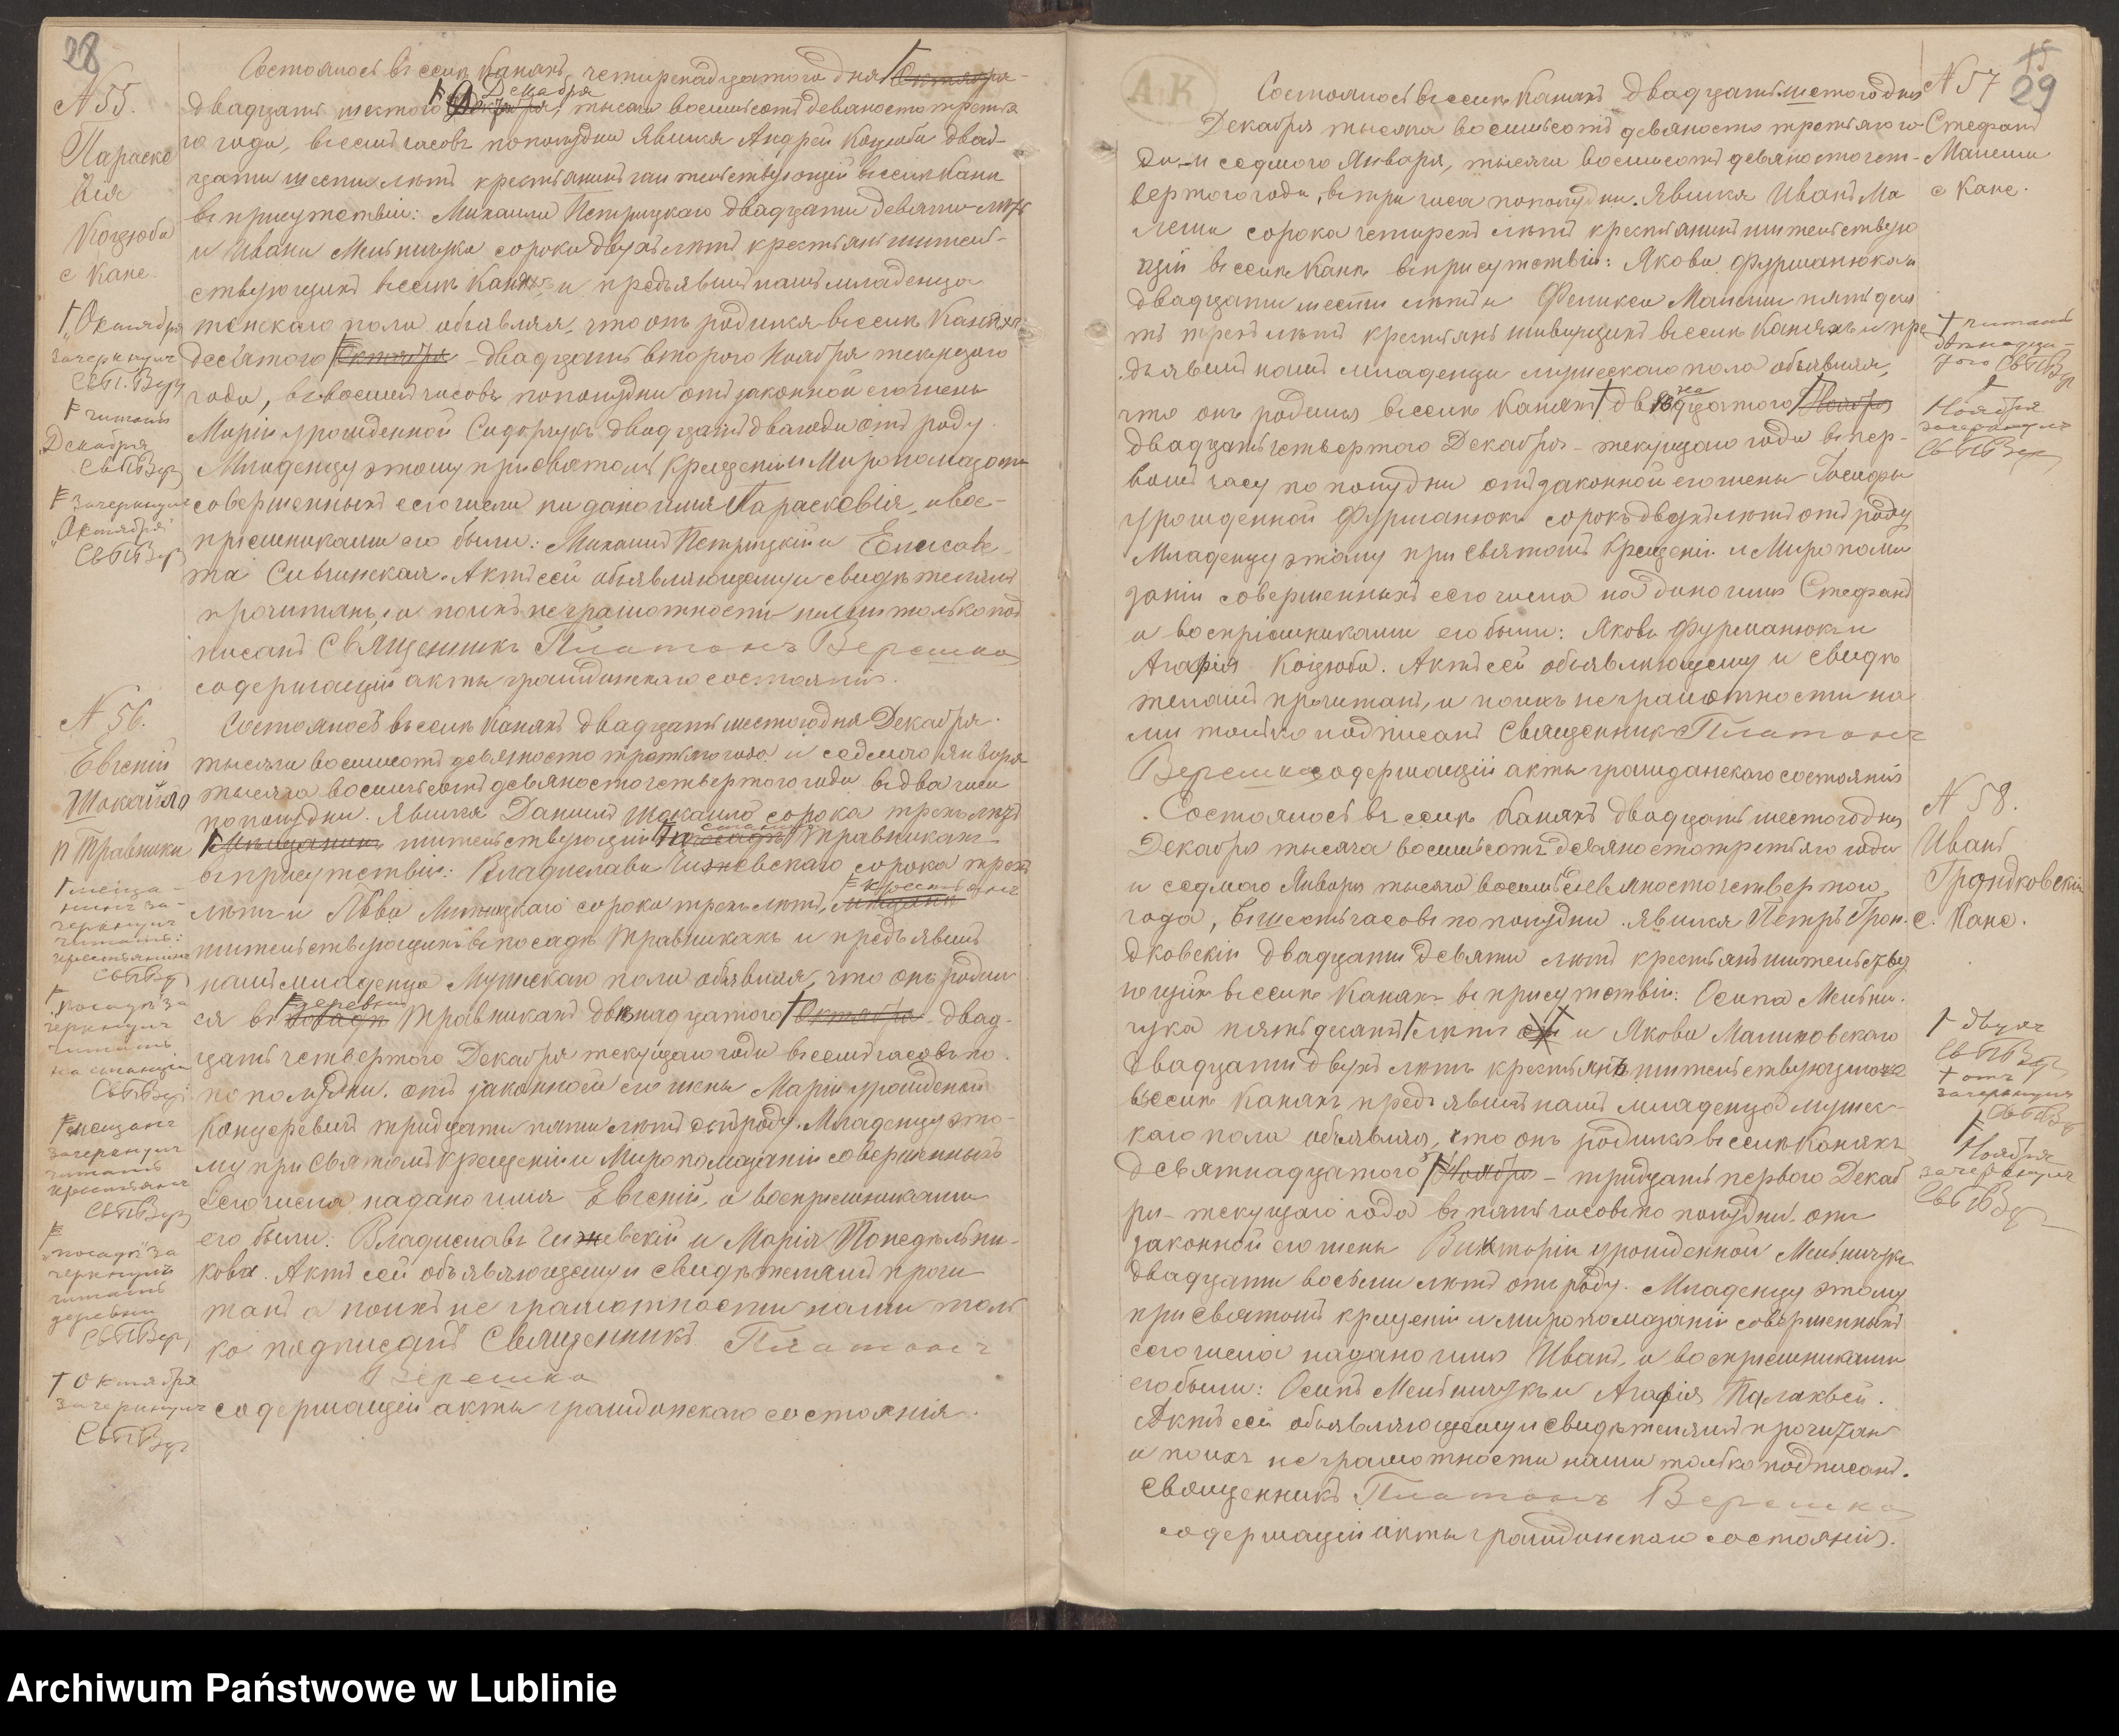 28
N 55.
Параске
вія
Коцюба
с Кане.
Состоялось въ селѣ Каняхъ, четырнадцатого дня Октября
Декабря
двадцать шестого тысяча восемьсотъ девяносто третья
го года, въ семь часовъ пополудни Явился Андрей Коцюба двад-
цати шести лѣтъ крестьянинъ жительствующій въ селѣ Кани
въ присутствіи: Михаила Петрицкаго двадцати девяти лѣтъ
и Ивана Мельничука сорока двухъ лѣтъ крестьянъ житель-
ствующихъ въ селѣ Каняхъ и предъявилъ намъ младенца
женскаго пола объявляя, что онъ родился въ селѣ Каняхъ
десятого Октября - двадцать второго Ноября текущаго
года, въ восемь часовъ пополудни отъ законной его жены
Маріи урожденной Сидорчукъ двадцать два года отъ роду.
Младенцу этому при святомъ Крещеніи и Миропомазаніи
совершенныхъ сего числа надано имя Параскевія, а вос-
пріемниками его были: Михаилъ Петрицкій и Елисаве-
та Сивчинская. Актъ сей объявляющему и свидѣтелямъ
прочитанъ, а по ихъ неграмотности нами только под
писанъ Священникъ Платонъ Верешко
содержащій акты гражданскаго состоянія.
† „Октября
зачеркнуто
СвПВер
читать
Декабря
СвПВер
зачеркнуто
„Октября"
СвПВер
N 56.
Евгеній
Шокайло
п Травники
Состоялось въ селѣ Каняхъ двадцать шестого дня Декабря.
тысяча восемьсотъ девяносто третьяго года и седьмого января
тысяча восемьсотъ девяносто четвертого года въ два часа
пополудни. Явился Даниилъ Шокайло сорока трехъ лѣтъ
Мѣщанинъ жительствующій станціи Травникахъ
въ присутствіи: Владислава Чижевскаго сорока трехъ
крестьянъ
лѣтъ и Льва сорока трехъ лѣтъ,
жительствующихъ въ посадѣ Травникахъ и предъявилъ
намъ младенца Мужескаго пола объявляя, что онъ родил
деревни
ся въ посадѣ Травникахъ двѣнадцатого Октября - двад-
цать четвертого Декабря текущаго года въ семь часовъ по
пополудни. отъ законной его жены Маріи урожденной
Концеревичъ тридцати пяти лѣтъ отъ роду. Младенцу это-
му при Святомъ Крещеніи и Миропомазаніи совершенныхъ
Сего числа надано имя Евгеній, а воспріемниками
его были: Владиславъ Чижевскій и Марія Понедѣльни-
кова. Актъ сей объявляющему и Свидѣтелямъ прочи
танъ а по ихъ не грамотности нами толь
ко подписанъ Священникъ Платонъ
Верешко
содержащій акты гражданскаго состоянія.
† мѣща-
нинъ за-
черкнуто
читать:
крестьянинъ
СвПВер
† посадѣ за
черкнуто
читать
на станціи
СвПВер
мѣщанъ
зачеркнуто
читать
крестьянъ
СвПВер
„посадѣ" за
черкнуто
читать
деревни
СвПВер
† Октября
зачеркнуто
СвПВер
15
29
А К
N 57
Стефанъ
Малеша
с Кане.
Состоялось въ селѣ Каняхъ двадцать шестого дня
Декабря тысяча восемьсотъ девяносто третьяго го
да - и седмого Января, тысяча восемьсотъ девяносто чет-
вертого года, въ три часа пополудни. Явился Иванъ Ма
леша сорока четырехъ лѣтъ крестьянинъ жительствую
щій въ селѣ Кани въ присутствіи: Якова Фурманюка и
двадцати шести лѣтъ и Феликса Малеши пятьдеся
ть трехъ лѣтъ крестьянъ живущихъ въ селѣ Каняхъ и пре
дъявилъ намъ младенца мужескаго пола объявляя,
что онъ родился въ селѣ Каняхъ двѣнадцатого Ноября
двадцать четвертого Декабря - текущаго года въ пер-
вомъ часу по полудни отъ законной его жены Іосифы
урожденной Фурманюкъ сорокъ двухъ лѣтъ отъ роду
Младенцу этому при Святомъ Крещеніи и Миропома
заніи совершенныхъ сего числа надано имя Стефанъ
а воспріемниками его были: Яковъ Фурманюкъ и
Агафія Коцюба. Актъ сей объявляющему и свидѣ
телямъ прочитанъ, а по ихъ неграмотности на
ми только подписанъ Священникъ Платонъ
Верешко содержащій акты гражданскаго состоянія
† читать
двѣнадца-
того СвПВер
†
Ноября
зачеркнуто
СвПВер
N 58.
Иванъ
Грондковскій
с. Кане.
Состоялось въ селѣ Каняхъ двадцать шестого дня
Декабря тысяча восемьсотъ девяносто третьяго года
и седмого Января тысяча восемьсотъ девяносто четвертого
года, въ шесть часовъ по полудни. явился Петръ Грон-
дковскій двадцати девяти лѣтъ крестьянъ жительству
ющій въ селѣ Каняхъ въ присутствіи: Осипа Мельни-
чука пятьдесять лѣтъ и Якова Малиновскаго
двадцати двухъ лѣтъ крестьянъ жительствующихъ
въ селѣ Каняхъ предъявилъ намъ младенца мужес-
каго пола объявляя, что онъ родился въ селѣ Каняхъ
девятнадцатого Ноября - тридцать первого Декаб
ря - текущаго года въ пять часовъ по полудни. отъ
законной его жены Викторіи урожденной Мельничукъ
двадцати восьми лѣтъ отъ роду. Младенцу этому
при Святомъ крещеніи и миропомазаніи совершенныхъ
сего числа надано имя Иванъ, а воспріемниками
его были: Осипъ Мельничукъ и Агафія Палаквей.
Актъ сей объявляющему и свидѣтелямъ прочитан
и по ихъ не грамотности нами только подписанъ.
Священникъ Платонъ Верешко
содержащій акты гражданскаго состоянія.
† двухъ
СвПВер
† отъ
зачеркнуто
СвПВер
Ноября
зачеркнуто
СвПВер
Archiwum Państwowe w Lublinie